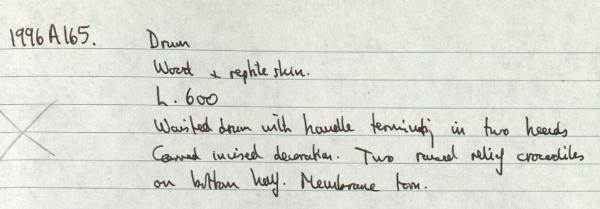 1996 A165. Drum
Wood + reptile skin.
L. 600
Waisted drum with handle terminating in two heads
Carved incised decoration. Two raised relief crocodiles
on bottom half. Membrane torn.